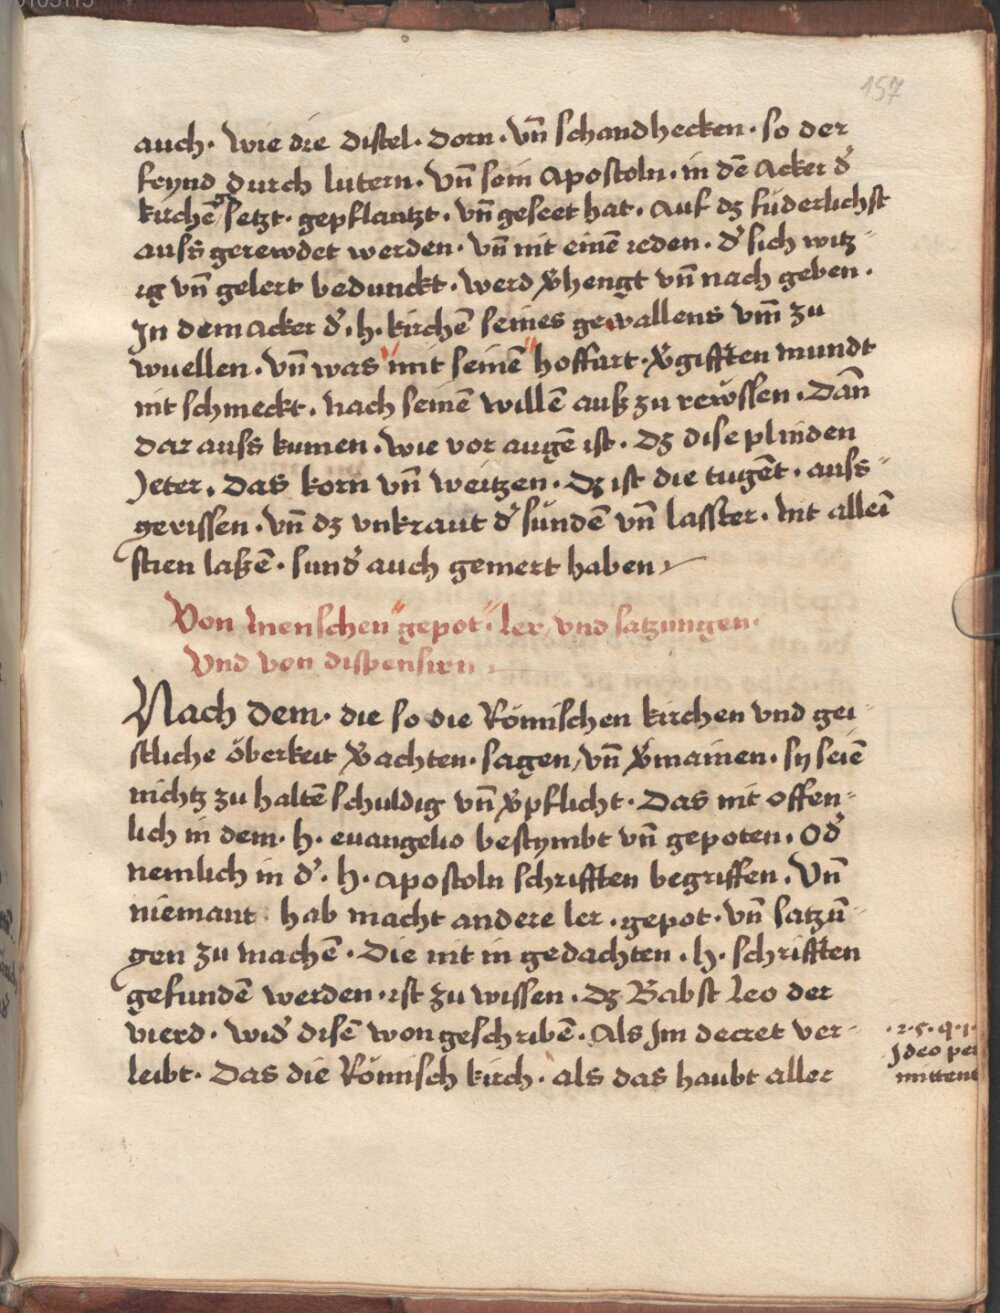 157
auch · wie die distel · dorn · vn̄ schandhecken · so der
feynd durch lutern · vn̄ sein apostoln · in dē acker d̛
kirchē setzt · gepflantzt · vn̄ geseet hat · auf dʒ füderlichst
auss gerewdet werden · vn̄ nit einē ieden · d̛ sich witz-
ig vn̄ gelert bedunckt · werd v̛hengt vn̄ nach geben ·
In dem acker d̛ · h · kirchē seines gewallens vm̄ zu
wuellen · vn̄ was mit seinē hoffart · v̛gifften mundt
nit schmeckt · nach seinē willē auß zu rewssen · Dān
dar auss kumen · wie vor augē ist · dʒ dise plinden
Jeter · das korn vn̄ weitzen · dʒ ist die tugēt · auss-
gerissen · vn̄ dʒ vnkraut d̛ sündē vn̄ lasster · nit alleī
stien laßē · sund̛ auch gemert haben
Von menschen gepot · ler, vnd satzungen ·
Vnd von dispensirn ·
Nach dem · die so die Römischen kirchen vnd gei-
stliche öberkeit v̛achten · sagen, vn̄ v̛mainen · sy seiē
nichtz zu haltē schuldig vn̄ v̛pflicht · Das nit offen-
lich in dem · h · euangelio bestymbt vn̄ gepoten · Od̛
nemlich in d̛ · h · apostoln schrifften begriffen · Vn̄
niemant hab macht andere ler · gepot · vn̄ satzū-
gen zu machē · Die nit in gedachten · h · schrifften
gefundē werden · ist zu wissen · dʒ Babst Leo der
vierd · wid̛ disē won geschribē · Als Im decret ver-
leibt · Das die Römisch kirch · als das haubt aller
· 25 · q · 1 ·
Ideo per
mittent